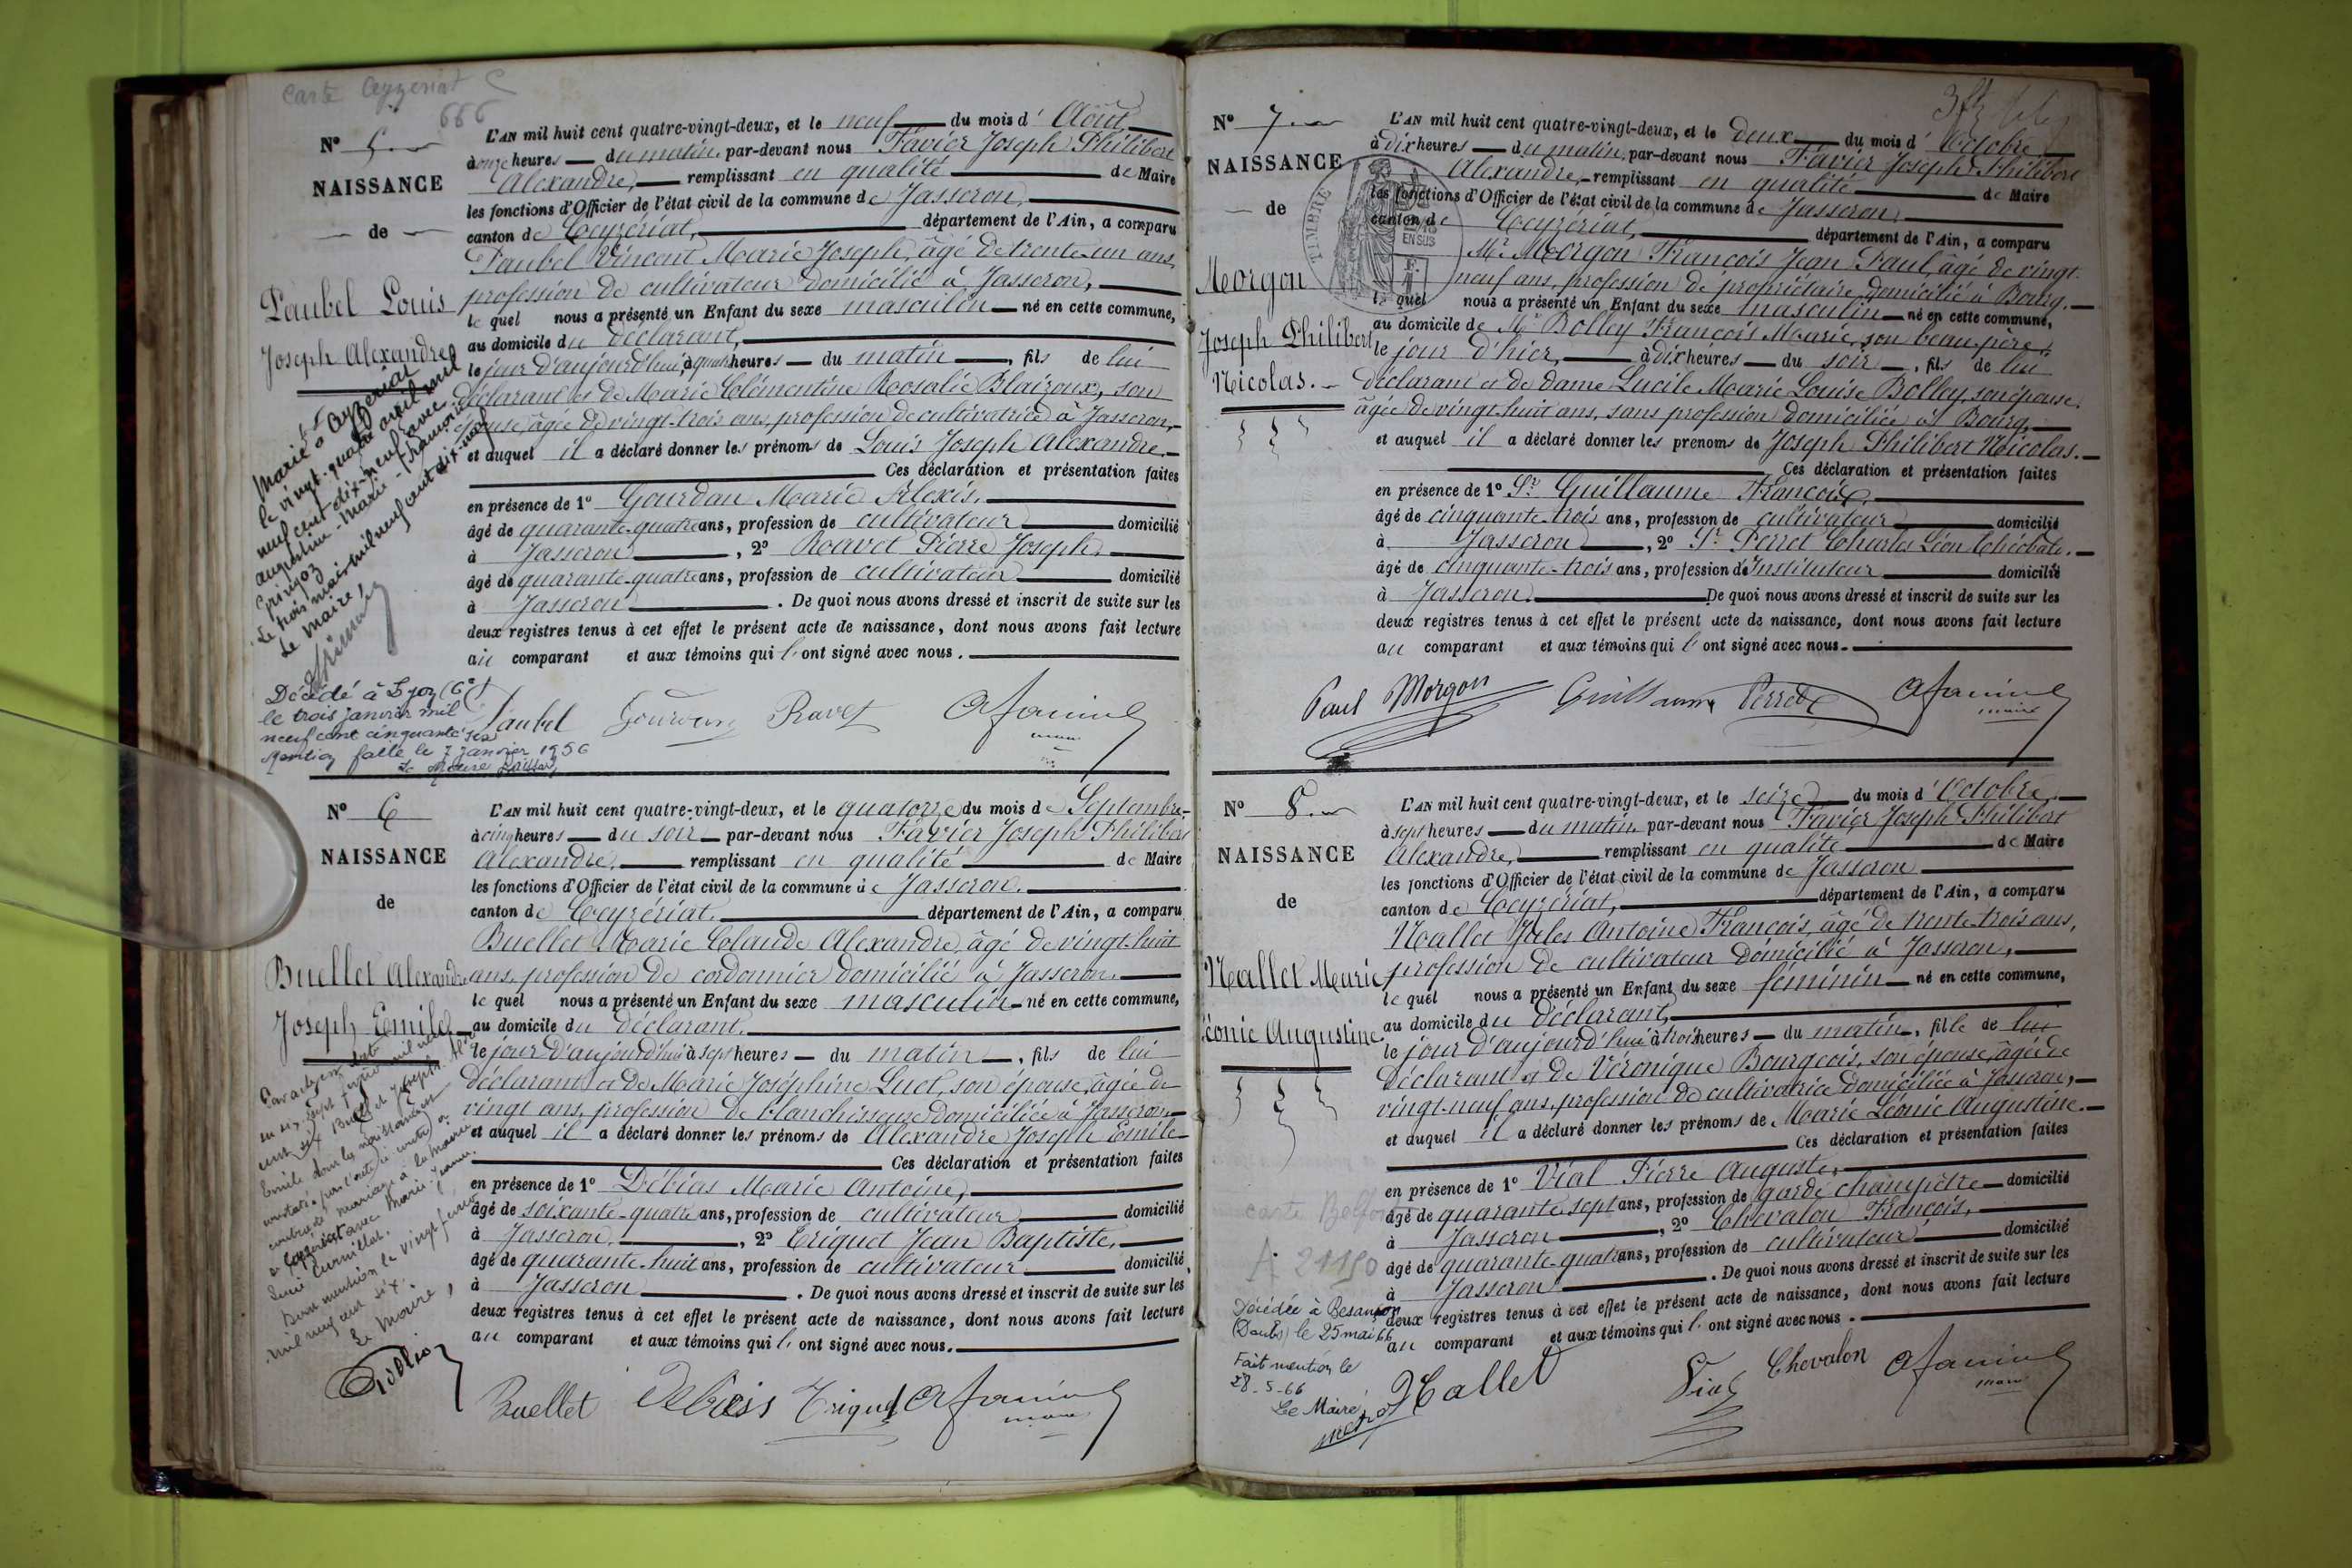 Carte Ceyzeriat C
666
N° 5
NAISSANCE
de
Paubel Louis
Joseph Alexandre
L'AN mil huit cent quatre-vingt-deux, et le neuf du mois d'Août
à onze heures du matin, par-devant nous Favier Joseph Philibert
Alexandre, remplissant en qualité de Maire
les fonctions d'Officier de l'état civil de la commune de Jasseron,
canton de Ceyzériat, département de l'Ain, a comparu
Paubel Vincent Marie Joseph, âgé de trente-un ans,
profession de cultivateur domicilié à Jasseron,
lequel nous a présenté un Enfant du sexe masculin né en cette commune,
au domicile du déclarant,
le jour d'aujourd'hui, à quatre heures du matin, fils de lui
déclarant et de Marie Clémentine Rosalie Blairoux, son
épouse, âgée de vingt-trois ans, profession de cultivatrice à Jasseron,
et auquel il a déclaré donner les prénoms de Louis Joseph Alexandre.
Ces déclaration et présentation faites
en présence de 1° Gourdan Marie Alexis,
âgé de quarante-quatre ans, profession de cultivateur domicilié
à Jasseron, 2° Ravet Pierre Joseph,
âgé de quarante-quatre ans, profession de cultivateur domicilié
à Jasseron. De quoi nous avons dressé et inscrit de suite sur les
deux registres tenus à cet effet le présent acte de naissance, dont nous avons fait lecture
au comparant et aux témoins qui l'ont signé avec nous.
Marié à Ceyzériat
le vingt-quatre avril mil
neuf cent dix-neuf avec
Augustine Marie
Grinjoz
Le trois mai mil neuf cent dix-neuf
Le Maire,
Décédé à Lyon (6e)
le trois janvier mil
neuf cent cinquante six
Mention faite le 7 janvier 1956
Le Maire
Paubel Gourdan Ravet A favier
maire
N° 6
NAISSANCE
de
Buellet Alexandre
Joseph Emile
L'AN mil huit cent quatre-vingt-deux, et le quatorze du mois de Septembre,
à cinq heures du soir par-devant nous Favier Joseph Philibert
Alexandre, remplissant en qualité de Maire
les fonctions d'Officier de l'état civil de la commune de Jasseron,
canton de Ceyzériat, département de l'Ain, a comparu
Buellet Marie Claude Alexandre, âgé de vingt-huit
ans, profession de cordonnier domicilié à Jasseron,
lequel nous a présenté un Enfant du sexe masculin né en cette commune,
au domicile du déclarant,
le jour d'aujourd'hui à sept heures du matin, fils de lui
déclarant et de Marie Joséphine Luct, son épouse, âgée de
vingt ans, profession de blanchisseuse domiciliée à Jasseron
et auquel il a déclaré donner les prénoms de Alexandre Joseph Emile
Ces déclaration et présentation faites
en présence de 1° Débias Marie Antoine,
âgé de soixante-quatre ans, profession de cultivateur domicilié
à Jasseron, 2° Triquet Jean Baptiste,
âgé de quarante-huit ans, profession de cultivateur domicilié
à Jasseron. De quoi nous avons dressé et inscrit de suite sur les
deux registres tenus à cet effet le présent acte de naissance, dont nous avons fait lecture
au comparant et aux témoins qui l'ont signé avec nous.
Par acte en date
cent six Buellet Joseph
Emile dont la naissance est
constatée par l'acte ci contre a
contracté mariage à la mairie
de Ceyzériat avec Marie Jeanne
Dont mention le vingt février
mil neuf cent six.
Le Maire,
Buellet Debiass Triquet A favier
maire
N° 7
NAISSANCE
de
Morgon
Joseph Philibert
Nicolas.
TIMBRE
EN SUS
L'AN mil huit cent quatre-vingt-deux, et le deux du mois d'Octobre
à dix heures du matin, par-devant nous Favier Joseph Philibert
Alexandre, remplissant en qualité de Maire
les fonctions d'Officier de l'état civil de la commune de Jasseron,
canton de Ceyzériat, département de l'Ain, a comparu
Mr Morgon François Jean Paul, âgé de vingt-
neuf ans, profession de propriétaire domicilié à Bourg.
lequel nous a présenté un Enfant du sexe masculin né en cette commune,
au domicile de Mr Bolley François Marie, son beau-père,
le jour d'hier, à dix heures du soir, fils de lui
déclarant et de dame Lucile Marie Louise Bolley, son épouse,
âgée de vingt-huit ans, sans profession domiciliée à Bourg,
et auquel il a déclaré donner les prénoms de Joseph Philibert Nicolas.
Ces déclaration et présentation faites
en présence de 1° Sr Guillaume François,
âgé de cinquante-trois ans, profession de cultivateur domicilié
à Jasseron, 2° Sr Perret Charles Léon Théobate,
âgé de cinquante-trois ans, profession d'Instituteur domicilié
à Jasseron. De quoi nous avons dressé et inscrit de suite sur les
deux registres tenus à cet effet le présent acte de naissance, dont nous avons fait lecture
au comparant et aux témoins qui l'ont signé avec nous.
Paul Morgon Guillaume Perret A favier
maire
N° 8
NAISSANCE
de
Mallet Marie
Léonie Augustine
L'AN mil huit cent quatre-vingt-deux, et le seize du mois d'Octobre,
à sept heures du matin, par-devant nous Favier Joseph Philibert
Alexandre, remplissant en qualité de Maire
les fonctions d'Officier de l'état civil de la commune de Jasseron
canton de Ceyzériat, département de l'Ain, a comparu
Mallet Jules Antoine François, âgé de trente-trois ans,
profession de cultivateur domicilié à Jasseron,
lequel nous a présenté un Enfant du sexe féminin né en cette commune,
au domicile du déclarant,
le jour d'aujourd'hui à trois heures du matin, fille de lui
déclarant et de Véronique Bourgeois, son épouse, âgée de
vingt-neuf ans, profession de cultivatrice domiciliée à Jasseron,
et auquel il a déclaré donner les prénoms de Marie Léonie Augustine.
Ces déclaration et présentation faites
en présence de 1° Vial Pierre Auguste,
âgé de quarante-sept ans, profession de garde champêtre domicilié
à Jasseron, 2° Chevalon François,
âgé de quarante-quatre ans, profession de cultivateur domicilié
à Jasseron. De quoi nous avons dressé et inscrit de suite sur les
deux registres tenus à cet effet le présent acte de naissance, dont nous avons fait lecture
au comparant et aux témoins qui l'ont signé avec nous.
carte Belfort
A 21190
Décédée à Besançon
(Doubs) le 25 mai 66
Fait mention le
28-5-66
Le Maire
Mallet Vial Chevalon A favier
maire